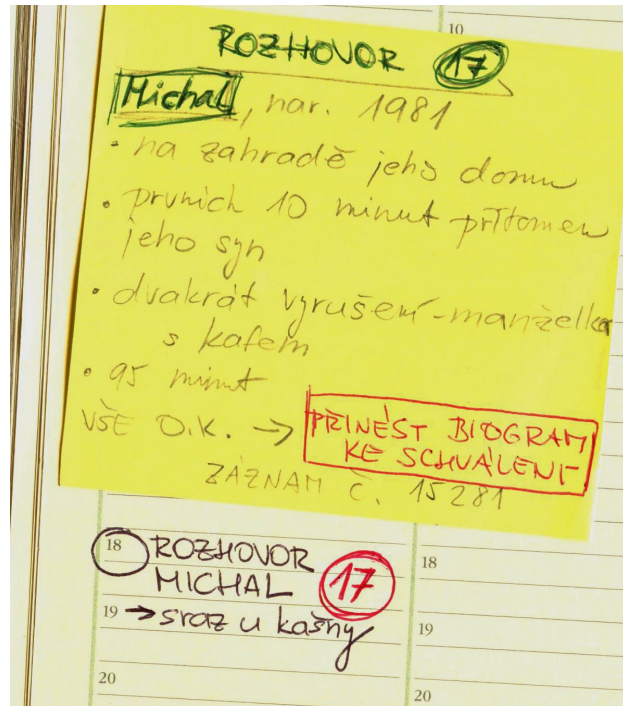 10
ROZHOVOR 17
Michal, nar. 1981
• na zahradě jeho domu
• prvních 10 minut přítomen
jeho syn
• dvakrát vyrušení - manželka
s kafem
• 95 minut
VŠE O.K. → PŘINÉST BIOGRAM
KE SCHVÁLENÍ
ZÁZNAM Č. 15281
18 ROZHOVOR
MICHAL 17
18
19 → sraz u kašny
19
20
20